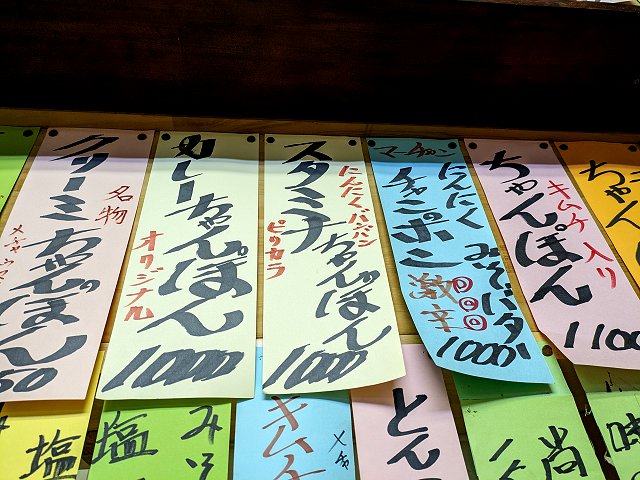 クリーミーちゃんぽん
名物
50
カレーちゃんぽん
オリジナル
1000
スタミナちゃんぽん
にんにくバンバン
ピリカラ
1000
マーチャン
にんにくみそバター
チャンポン
激辛
1000
ちゃんぽん
キムチ入り
1100
ちゃんぽ
塩
みそ
塩
キムチ
メチャ
とん
尚